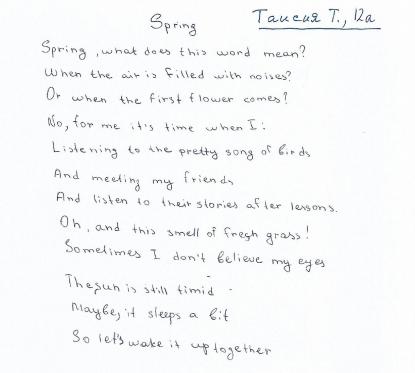 Spring Таисия Т., 12а
Spring, what does this word mean?
When the air is filled with noises?
Or when the first flower comes?
No, for me it's time when I:
Listening to the pretty song of birds
And meeting my friends
And listen to their stories after lessons.
Oh, and this smell of fresh grass!
Sometimes I don't believe my eyes
The sun is still timid
Maybe, it sleeps a bit
So let's wake it up together